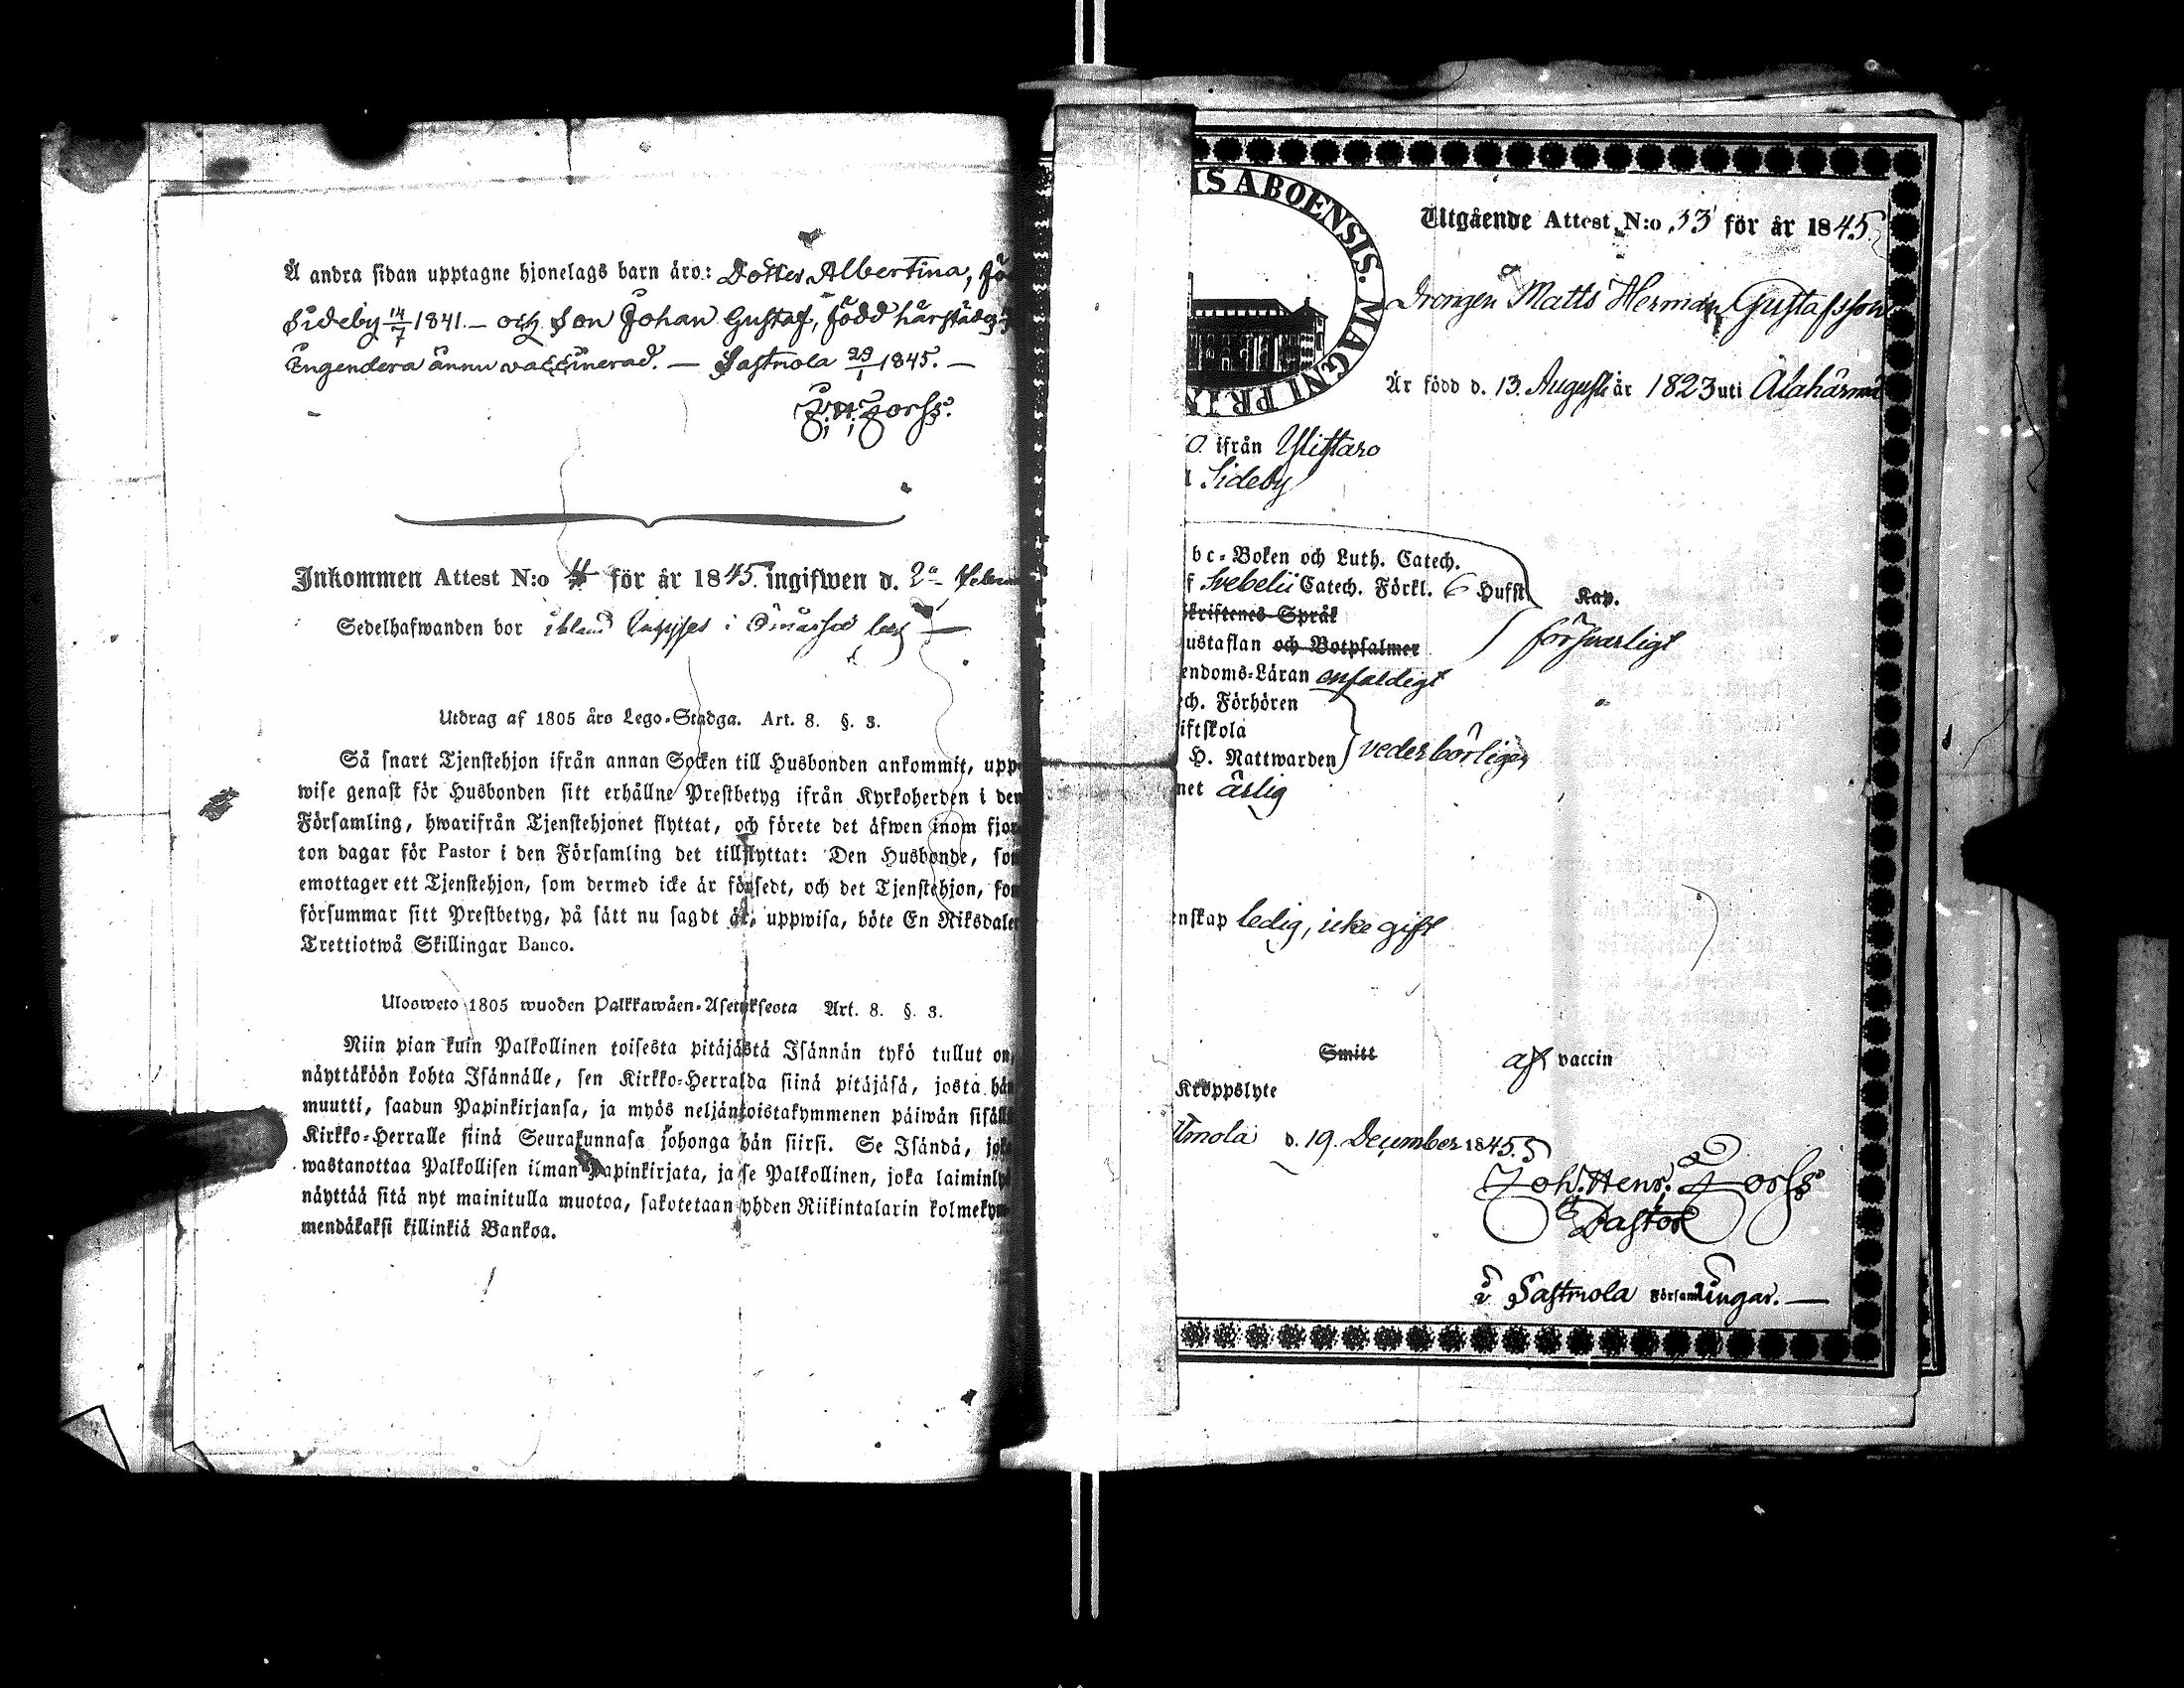 Å andra sidan upptagne hjonelags barn äro: Dotter Albertina, fö
Sideby 14/7 1841. – och Son Johan Gustaf, född härstädes
Ingendera ännu vaccinerad. — Sastmola 29/1 1845. —
J. H. Forss.
Inkommen Attest N:o 4 för år 1845 ingifwen d. 2a Febru
Sedelhafwanden bor ibland i
Utdrag af 1805 års Lego-Stadga. Art. 8. §. 3.
Så snart Tjenstehjon ifrån annan Socken till Husbonden ankommit, upp
wise genast för Husbonden sitt erhållne Prestbetyg ifrån Kyrkoherden i den
Församling, hwarifrån Tjenstehjonet flyttat, och förete det äfwen inom fjor
ton dagar för Pastor i den Församling det tillflyttat: Den Husbonde, som
emottager ett Tjenstehjon, som dermed icke är försedt, och det Tjenstehjon, som
försummar sitt Prestbetyg, på sätt nu sagdt är, uppwisa, böte En Riksdaler
Trettiotwå Skillingar Banco.
Ulosweto 1805 wuoden Palkkawäen-Asetuksesta Art. 8. §. 3.
Niin pian kuin Palkollinen toisesta pitäjästä Isännän tykö tullut on,
näyttäköön kohta Isännälle, sen Kirkko-Herralda siinä pitäjäsä, josta hän
muutti, saadun Papinkirjansa, ja myös neljäntoistakymmenen päiwän sisällä
Kirkko-Herralle siinä Seurakunnasa johonga hän siirsi. Se Isändä, joka
wastanottaa Palkollisen ilman Papinkirjata, ja se Palkollinen, joka laiminly
näyttää sitä nyt mainitulla muotoa, sakotetaan yhden Riikintalarin kolmekym
mendäkaksi killinkiä Bankoa.
IS ABOENSIS. MAGNI PRIN
Utgående Attest N:o 33 för år 1845
Drengen Matts Herman Gustafsson
Är född d. 13 Augusti år 1823 uti Alahärmä
o ifrån Ylistaro
Sideby
bc-Boken och Luth. Catech.
f Svebelii Catech. Förkl. 6 Hufst. Kap.
skriftenes Språk
ustaflan och Botpsalmer
försvarligt
endoms-Läran enfaldigt
ch. Förhören
iftskola
H. Nattwarden vederbörligen
net ärlig
enskap ledig, icke gift
Smitt af vaccin
Kroppslyte
tmola d. 19. December 1845.
Joh. Henr. Forss
Pastor
i Sastmola Församlingar. —